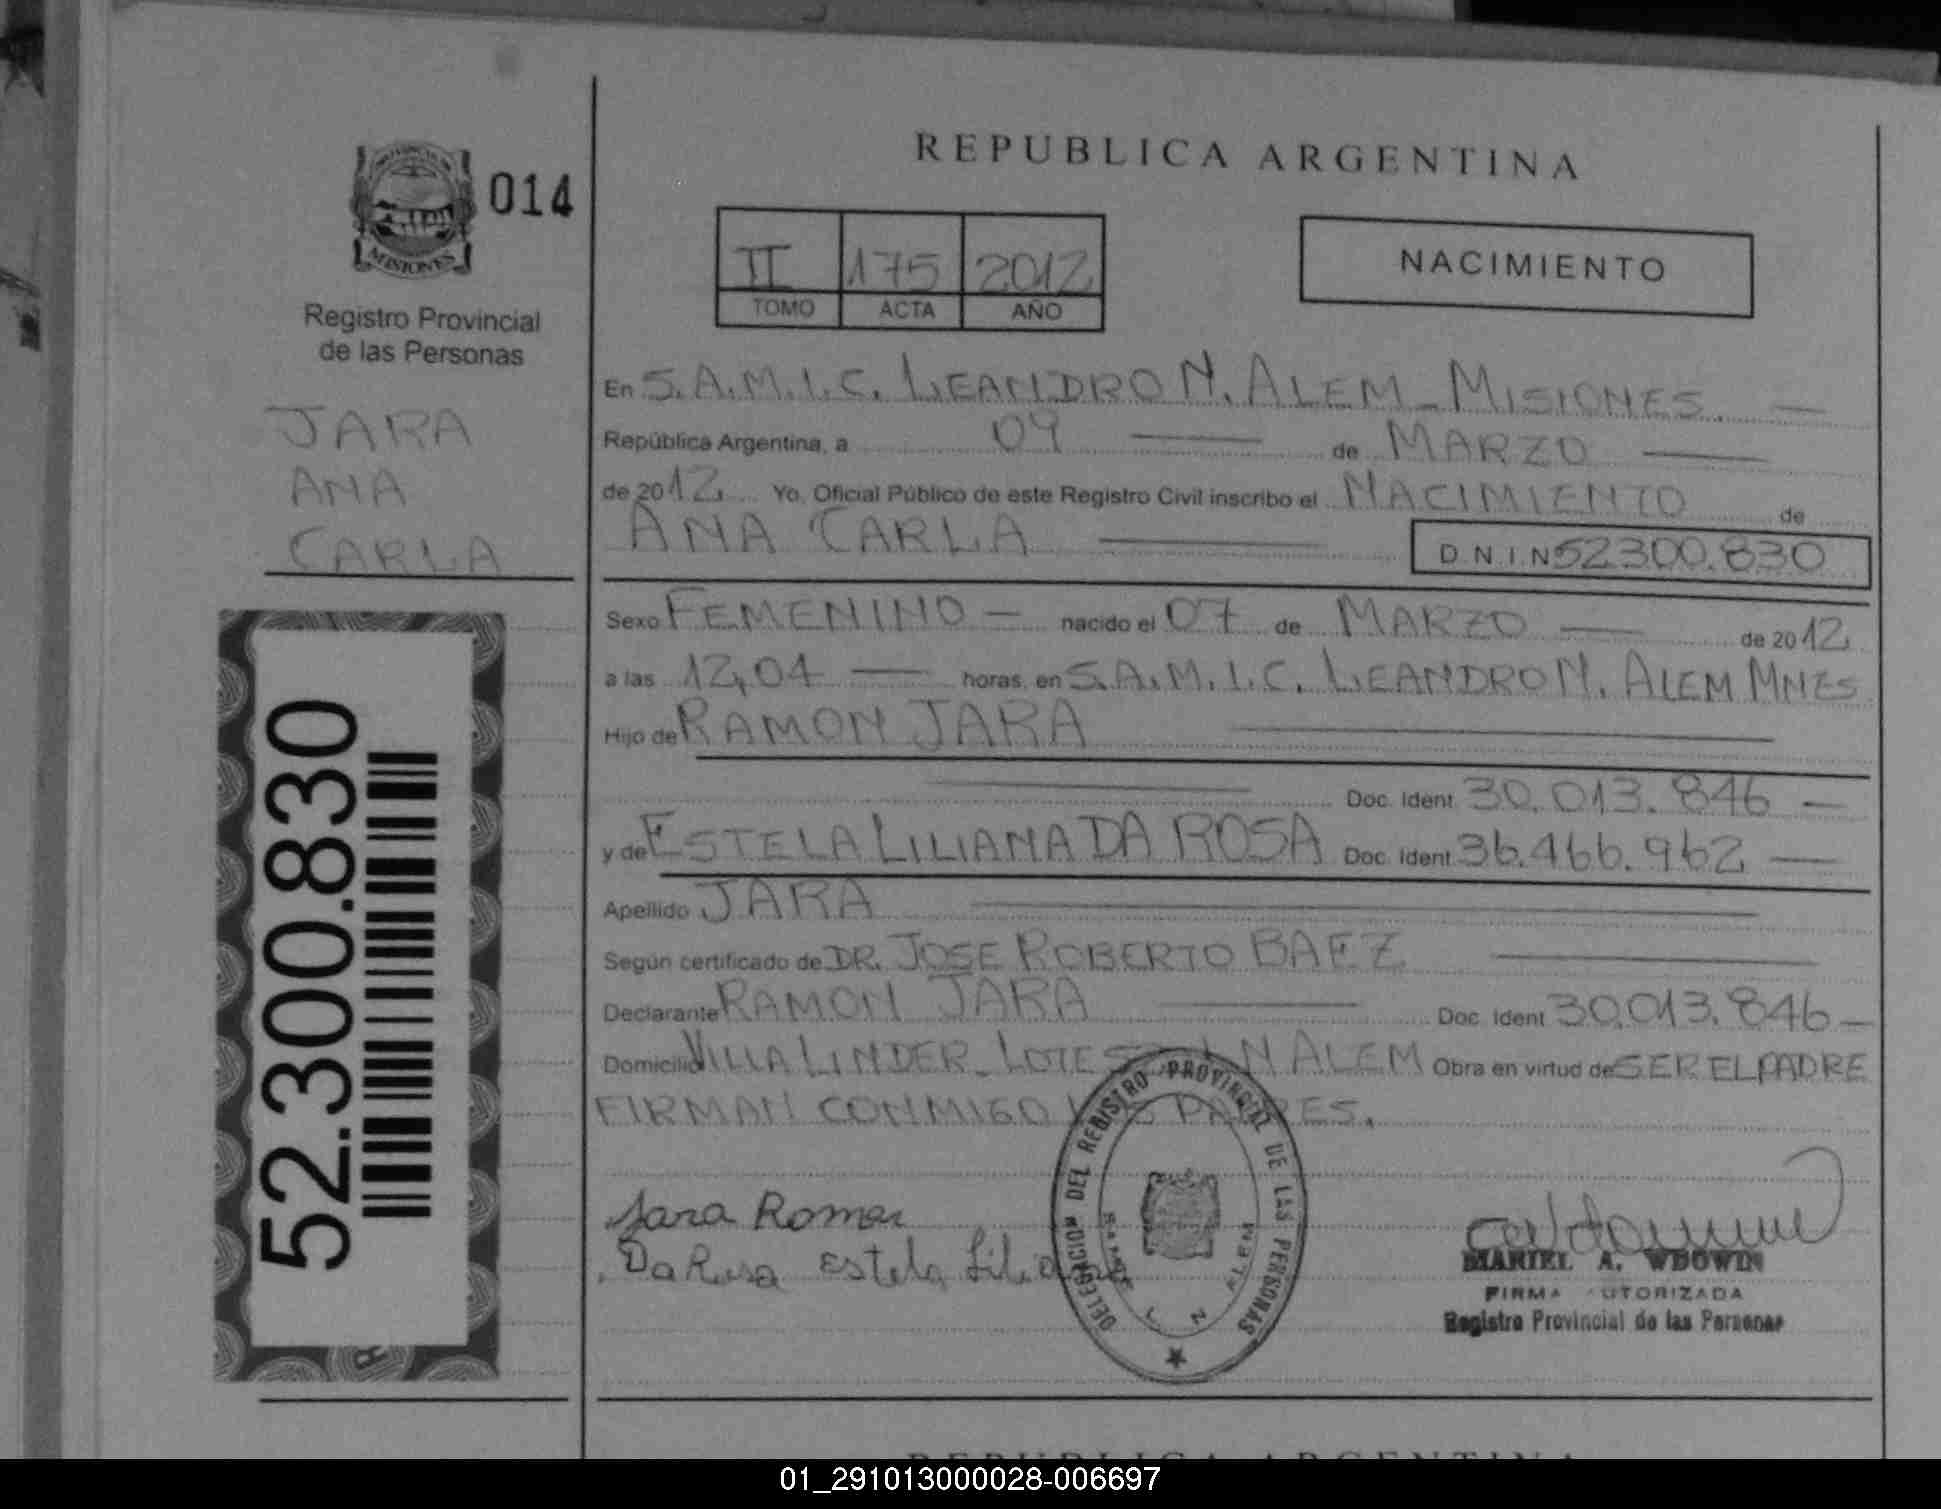 REPUBLICA ARGENTINA
014
MISIONES
Registro Provincial
de las Personas
II 175 2012
TOMO ACTA AÑO
NACIMIENTO
JARA
ANA
CARLA
52.300.830
En S.A.M.I.C. LEANDRO N. ALEM - MISIONES.
República Argentina, a 09 de MARZO
de 2012 Yo, Oficial Público de este Registro Civil inscribo el NACIMIENTO de
ANA CARLA D.N.I.N 52300.830
Sexo FEMENINO nacido el 07 de MARZO de 2012
a las 12,04 horas, en S.A.M.I.C. LEANDRO N. ALEM MNES
Hijo de RAMON JARA
Doc. Ident. 30.013.846
y de ESTELA LILIANA DA ROSA Doc. Ident. 36.466.962
Apellido JARA
Según certificado de DR. JOSE ROBERTO BAEZ
Declarante RAMON JARA Doc. Ident. 30.013.846
Domicilio VILLA LINDER - LOTE N ALEM Obra en virtud de SER EL PADRE
FIRMAN CONMIGO LOS PADRES.
Jara Ramon
Da Rosa Estela
DELEGACION DEL REGISTRO PROVINCIAL DE LAS PERSONAS
L N ALEM
MARIEL A. WDOWIN
FIRMA AUTORIZADA
Registro Provincial de las Personas
REPUBLICA ARGENTINA
01_291013000028-006697